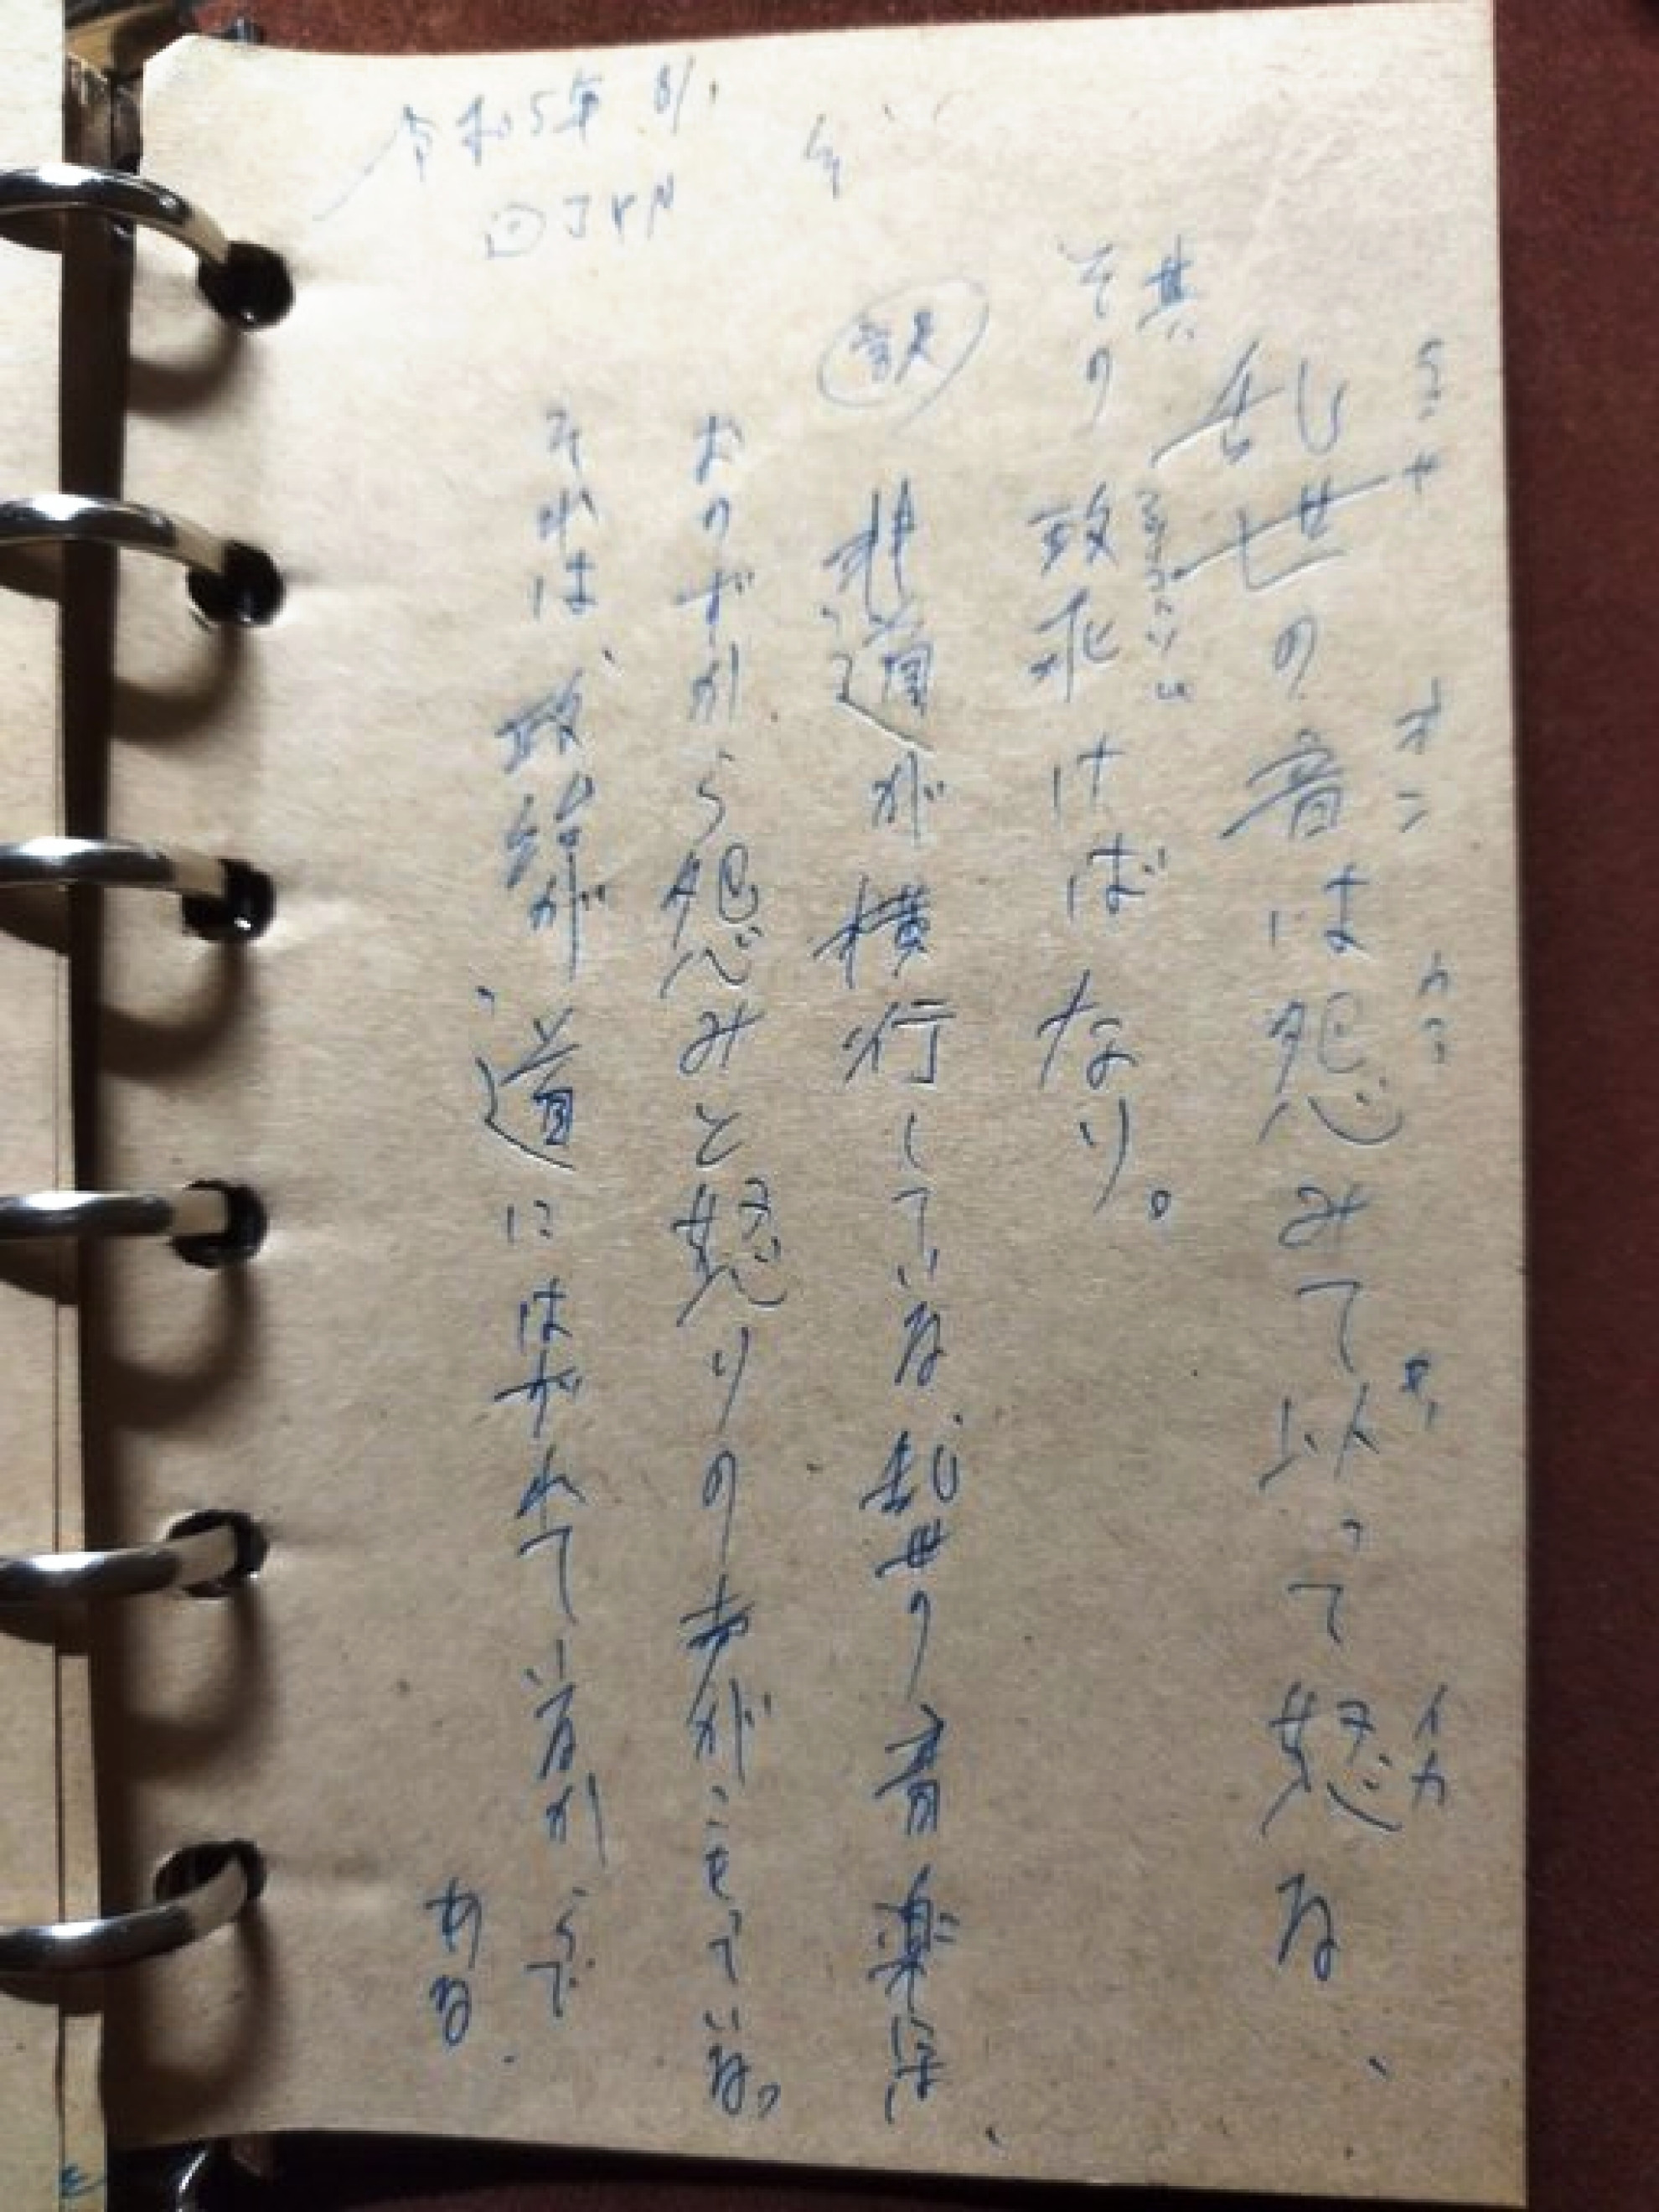 乱世の音は怨みて以って怒る、
其
その政乖けばなり。
訳
非道が横行している、乱世の音楽は、
おのずから怨みと怒りの声がこもっている。
それは、政治が道にはずれているからで
ある.
令和5年